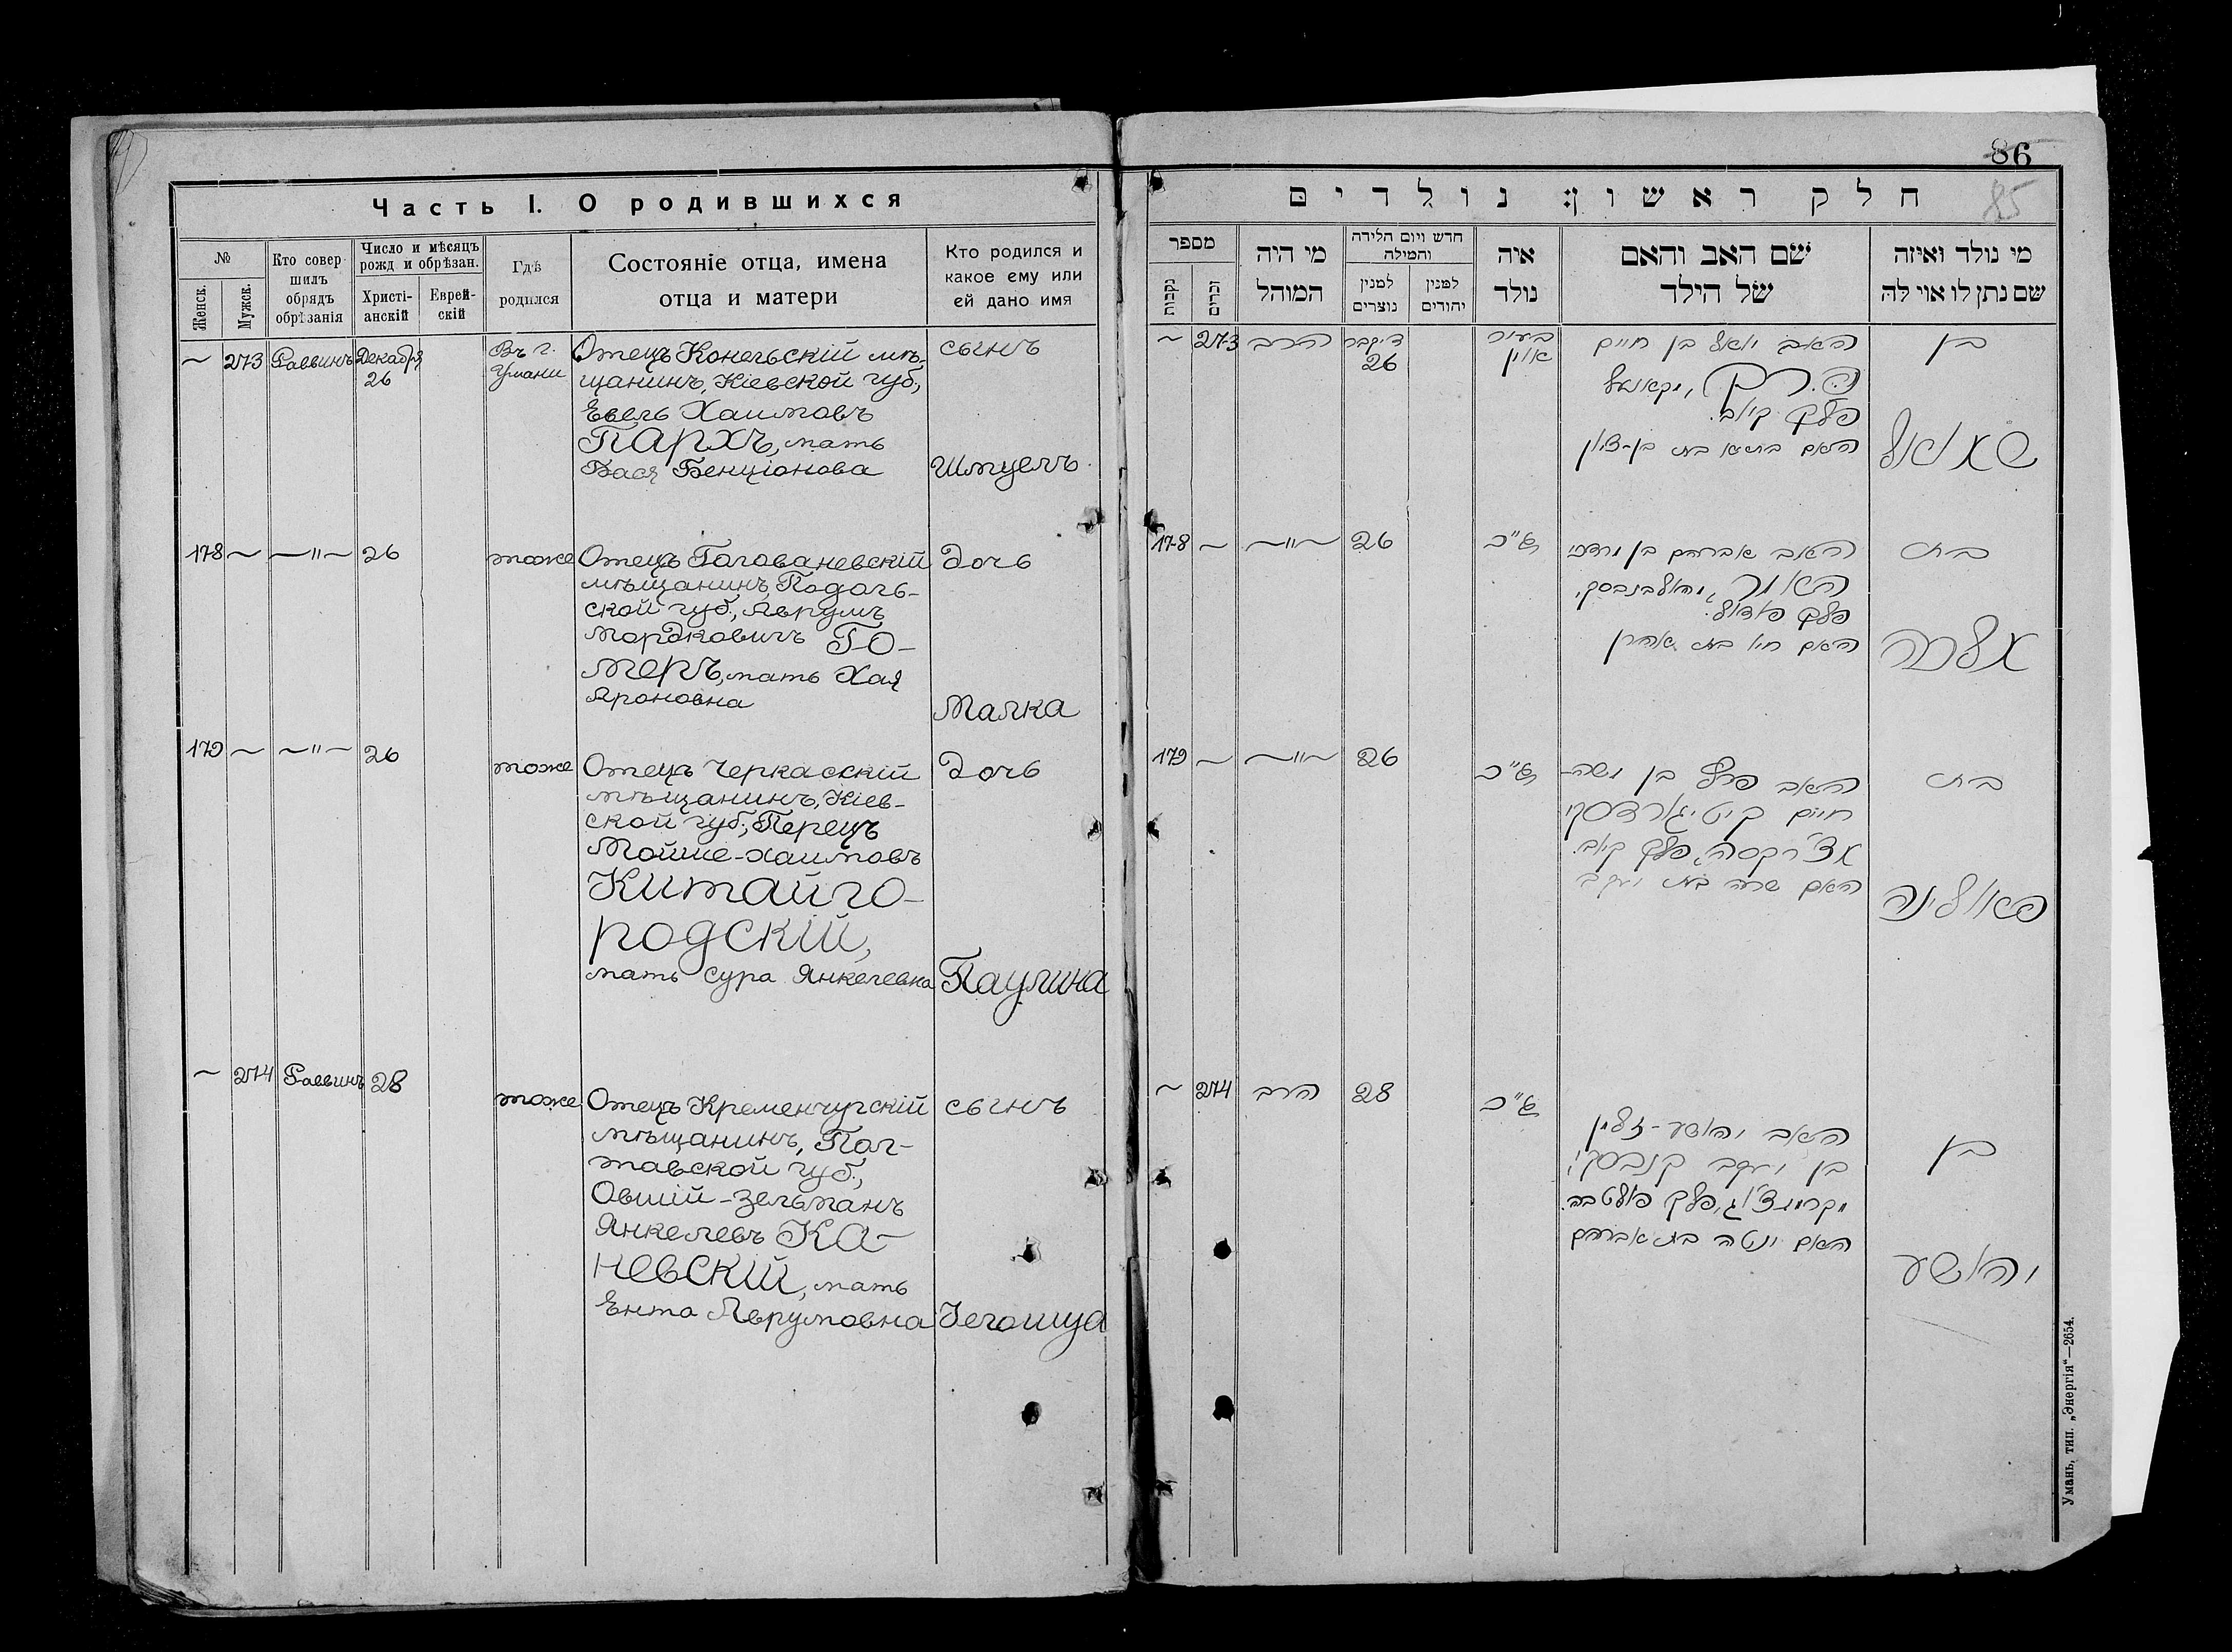 86
85
Часть I. О родившихся
№
Женск.
Мужск.
Кто совер
шилъ
обрядъ
обрѣзанія
Число и мѣсяцъ
рожд и обрѣзан.
Христі-
анскій
Еврей-
скій
Гдѣ
родился
Состояніе отца, имена
отца и матери
Кто родился и
какое ему или
ей дано имя
~ 273 Раввинъ Декабря
26
Въ г.
Умани
Отецъ Конельскій мѣ-
щанинъ, Кіевской губ.,
Евель Хаимовъ
Пархъ, мать
Бася Бенціонова
сынъ
Шмуель
178 ~ ~"~ 26
тоже
Отецъ Голованевскій
мѣщанинъ, Подоль-
ской губ., Аврумъ
Мордковичъ Го-
меръ, мать Хая
Ароновна
дочь
Малка
179 ~ ~"~ 26
тоже
Отецъ Черкасскій
мѣщанинъ, Кіев-
ской губ., Перецъ
Мойше-Хаимовъ
Китайго-
родскій,
мать Сура Янкелевна
дочь
Паулина
~ 274 Раввинъ 28
тоже
Отецъ Кременчугскій
мѣщанинъ, Пол-
тавской губ.,
Овшій-Зельманъ
Янкелевъ Ка-
невскій, мать
Ента Аврумовна
сынъ
Іегошуа
חלק ראשון: נולדים
מספר
נקבות
זכרים
מי היה
המוהל
חדש ויום הלידה
והמילה
למנין
נוצרים
למנין
יהודים
איה
נולד
שם האב והאם
של הילד
מי נולד ואיזה
שם נתן לו אוי לה
~ 273 הרב דיקבר
26
בעיר
אומן
האב יואל בן חיים
פלך קיוב.
האם בתיא בת בן-ציון
בן
שמואל
178 ~ ~"~ 26
האב אברהם בן מרדכי
פלך פאדאל.
האם חיא בת אהרן
בת
מלכה
179 ~ ~"~ 26
האב פרץ בן משה-
חיים קיטיגארדסקי
מצ'רקסה, פלך קיוב.
האם שרה בת יעקב
בת
פאולינה
~ 274 הרב 28
האב יהושע-זלמן
בן יעקב קנבסקי,
מקרמנצ'וג, פלך פולטבה.
האם ינטה בת אברהם
בן
יהושע
Умань, тип. „Энергія“—2654.